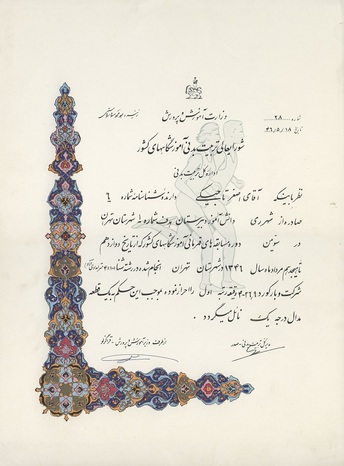 شماره ۲۸
وزارت آموزش و پرورش
تاریخ ۴۶/۵/۱۸
شورایعالی تربیت بدنی آموزشگاههای کشور
اداره کل تربیت بدنی
نظر باینکه آقای اصغر دارنده شناسنامه شماره ۶
صادره از شهر ری دانش آموز دبیرستان هدف شماره ۱ شهرستان تهران
در سومین دوره مسابقه های قهرمانی آموزشگاههای کشور که از تاریخ دوازدهم
تا هیجدهم مرداد ماه سال ۱۳۴۶ در شهرستان تهران انجام شد در رشته شنا
شرکت و با رکورد دقیقه رتبه اول را احراز نموده، بموجب این حکم بیک قطعه
مدال درجه یک نائل میگردد.
مدیر کل تربیت بدنی - صدری
از طرف وزیر آموزش و پرورش -